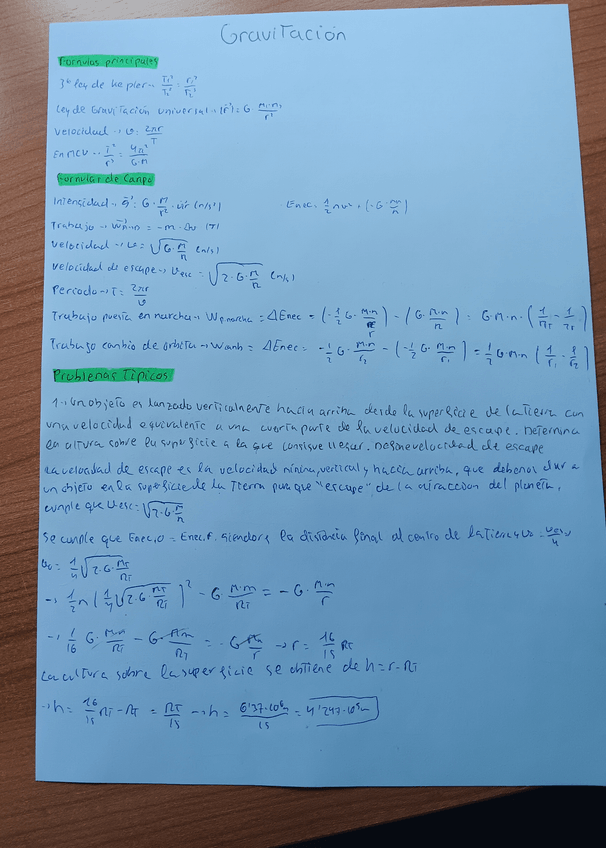 Gravitación
Formulas principales
3ª ley de kepler → T₁²/T₂² = r₁³/r₂³
Ley de Gravitación universal → |F| = G · M₁·m₂/r²
Velocidad → v = 2πr/T
En MCU → T²/r³ = 4π²/G·M
Formulas de Campo
Intensidad → g = G · M/r² · ur (n/s²) Enec = 1/2 mv² + (-G · m·m/r)
Trabajo → W = -m · Δv (J)
Velocidad → v = √(G · M/R) (n/s)
Velocidad de escape → vesc = √(2·G·M/R) (n/s)
Periodo → T = 2πr/v
Trabajo puesta en marcha → Wp.marcha = ΔEnec = (-1/2 G · M·m/r) - (G · M·m/R) = G·M·m · (1/RT - 1/r)
Trabajo cambio de orbita → Wcamb = ΔEnec = -1/2 G · M·m/r₂ - (-1/2 G · M·m/r₁) = 1/2 G·M·m (1/r₁ - 1/r₂)
Problemas Típicos
1.- Un objeto es lanzado verticalmente hacia arriba desde la superficie de la tierra con
una velocidad equivalente a una cuarta parte de la velocidad de escape. Determina
la altura sobre la superficie a la que consigue llegar. Define velocidad de escape
La velocidad de escape es la velocidad minima, vertical y hacia arriba, que debemos dar a
un objeto en la superficie de la Tierra para que "escape" de la atraccion del planeta,
cumple que vesc = √(2·G·M/R)
Se cumple que Enec,0 = Enec,f. siendo r la distancia final al centro de la tierra y v₀ = vesc/4
v₀ = 1/4 √(2·G·MT/RT)
→ 1/2 m (1/4 √(2·G·MT/RT))² - G · M·m/RT = -G · M·m/r
→ 1/16 G · M·m/RT - G · M·m/RT = -G M·m/r → r = 16/15 RT
La altura sobre la superficie se obtiene de h = r - RT
→ h = 16/15 RT - RT = RT/15 → h = 6'37·10⁶m/15 = 4'247·10⁵m